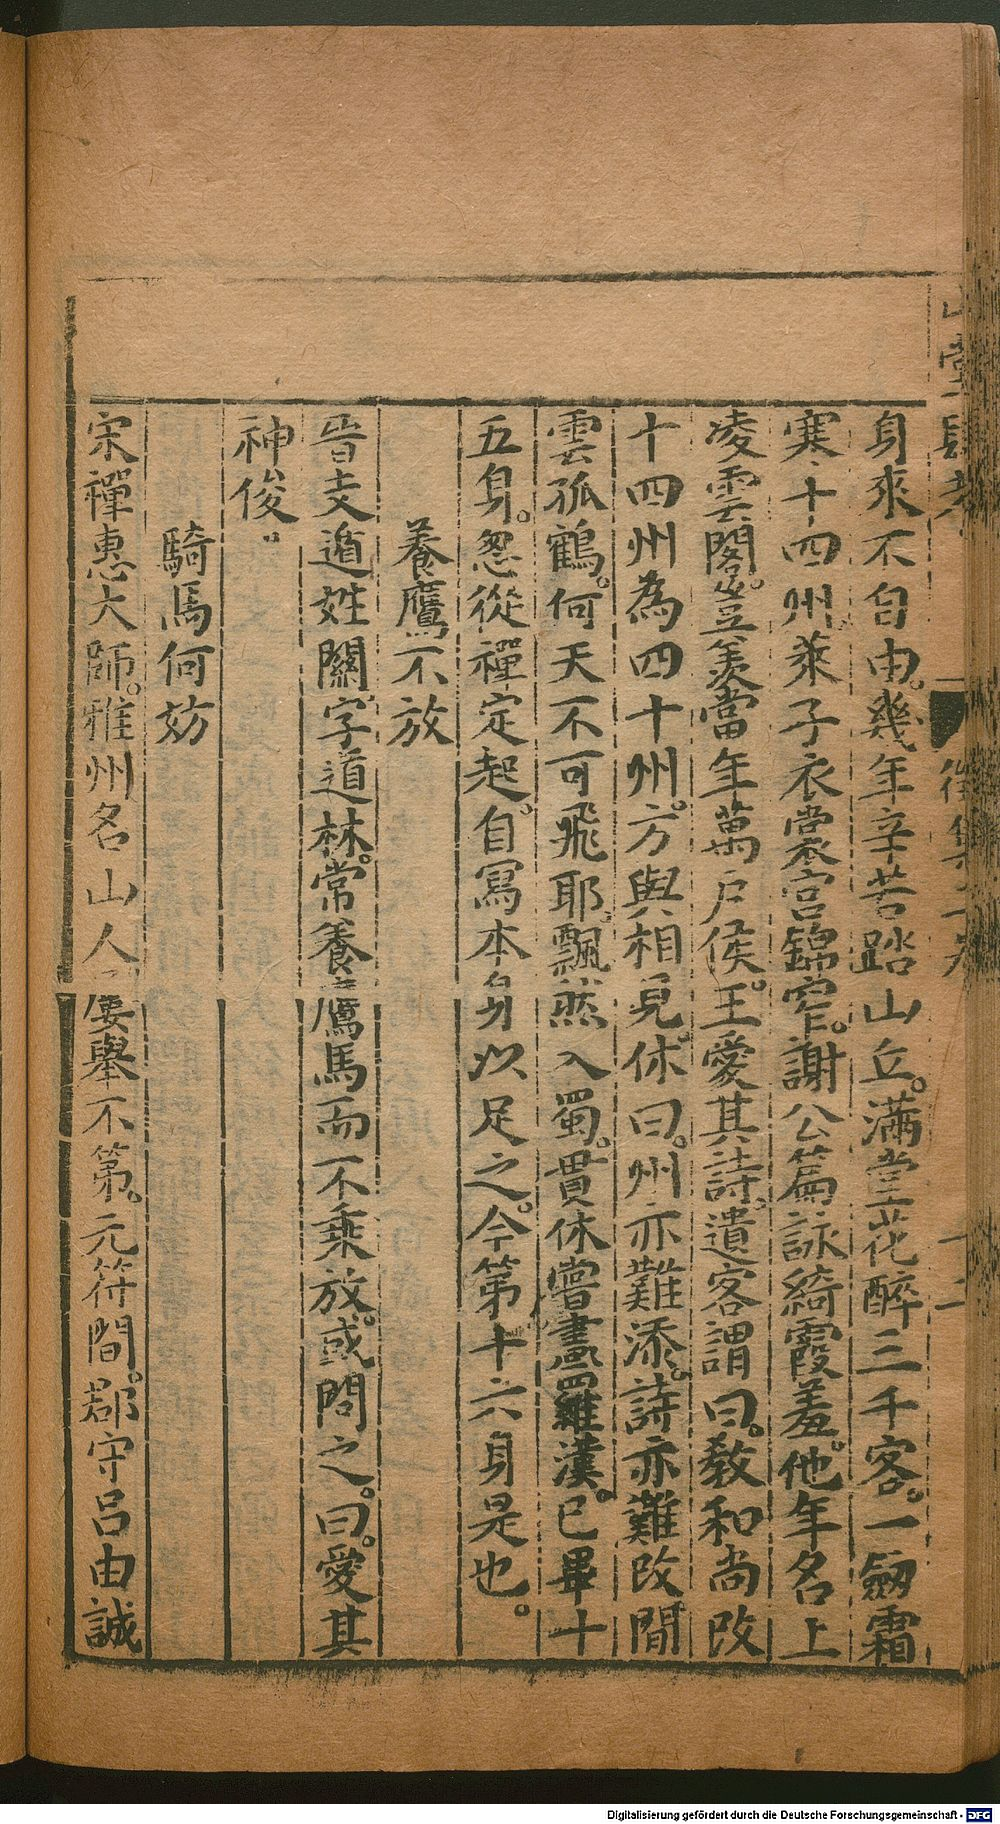 身來不自由。幾年辛苦踏山丘。滿堂花醉三千客。一劔霜
寒十四州。萊子衣裳宫錦窄。謝公篇詠綺霞羞。他年名上
凌雲閣。豈羨當年萬戶侯。王愛其詩。遣客謂曰。教和尚改
十四州為四十州。方與相見。休曰。州亦難添。詩亦難改。閒
雲孤鶴。何天不可飛耶。飄然入蜀。貫休嘗畫羅漢。已畢十
五身。忽從禪定起。自寫本身以足之。今第十六身是也。
養鷹不放
晉支遁姓關。字道林。常養鷹馬而不乘放。或問之。曰。愛其
神俊。
騎馬何妨
宋禪惠大師。雅州名山人。屢舉不第。元符間。郡守呂由誠
山堂肆考
十二
Digitalisierung gefördert durch die Deutsche Forschungsgemeinschaft - DFG